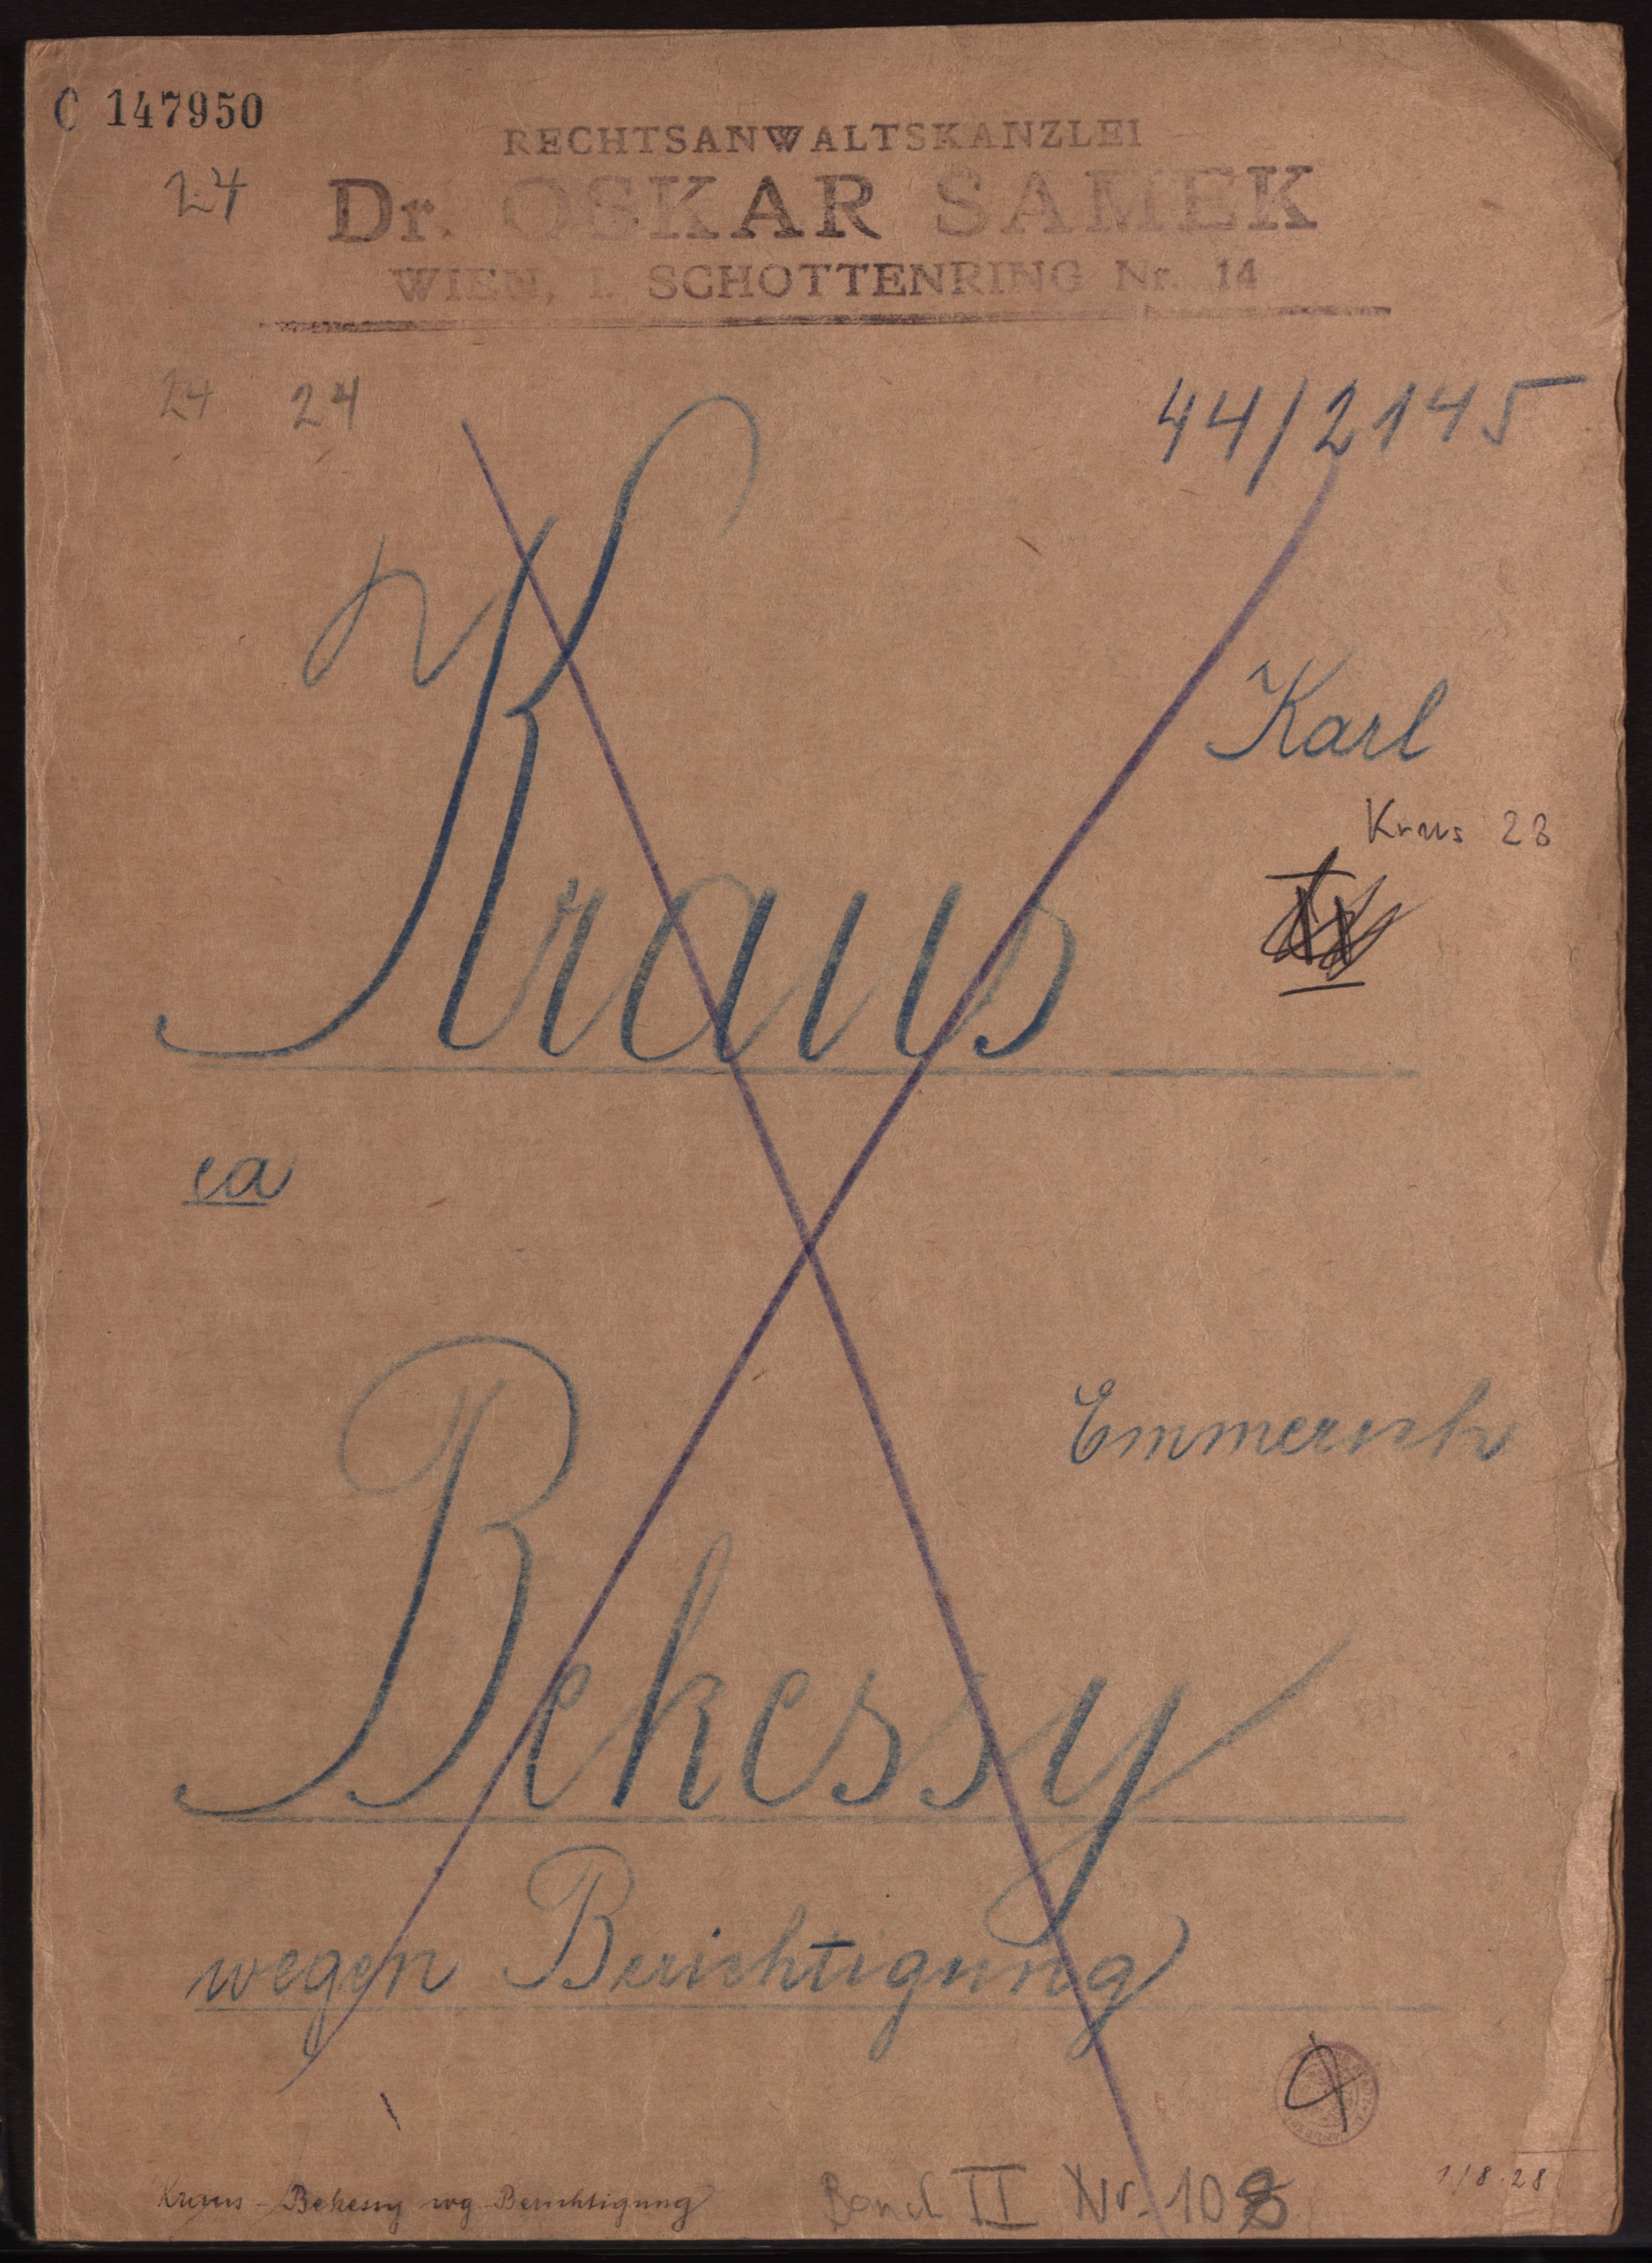 C 147950
RECHTSANWALTSKANZLEI
24
Dr. OSKAR SAMEK
WIEN, I. SCHOTTENRING Nr. 14
24 24
44/2145
Karl
Kraus 28
Kraus
ca
Emmerich
Bekessy
wegen Berichtigung
Kraus - Bekessy wg Berichtigung
Band II Nr. 108
1/8.28